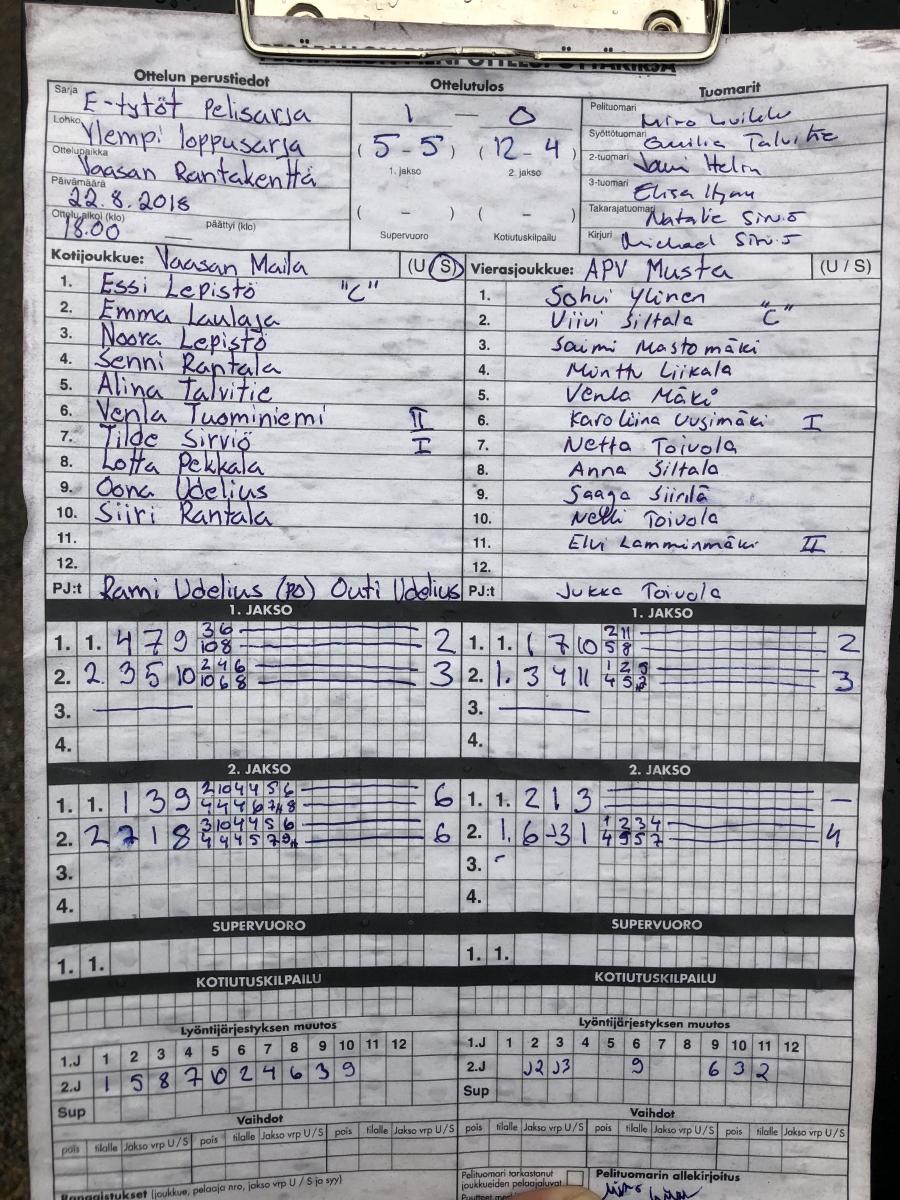 Ottelun perustiedot
Ottelutulos
Tuomarit
Sarja E-tytöt Pelisarja
Lohko Ylempi loppusarja
Ottelupaikka Vaasan Rantakenttä
Päivämäärä 22.8.2018
Ottelu alkoi (klo) 18.00 päättyi (klo)
1 — 0
( 5-5 ) ( 12-4 )
1. jakso 2. jakso
( - ) ( - )
Supervuoro Kotiutuskilpailu
Pelituomari Miro
Syöttötuomari Talvitie
2-tuomari Jani Helin
3-tuomari Elisa
Takarajatuomari Natalie Sirviö
Kirjuri Michael Sirviö
Kotijoukkue: Vaasan Maila (U/S)
1. Essi Lepistö "C"
2. Emma Laulaja
3. Noora Lepistö
4. Senni Rantala
5. Alina Talvitie
6. Venla Tuominiemi II
7. Tilde Sirviö I
8. Lotta Pekkala
9. Oona Udelius
10. Siiri Rantala
11.
12.
PJ:t Rami Udelius (PO) Outi Udelius
Vierasjoukkue: APV Musta (U / S)
1. Sohvi Ylinen
2. Viivi Siltala "C"
3. Saimi Mastomäki
4. Minttu Liikala
5. Venla Mäki
6. Karoliina Uusimäki I
7. Netta Toivola
8. Anna Siltala
9. Saaga Siirilä
10. Nelli Toivola
11. Elvi Lamminmäki II
12.
PJ:t Jukka Toivola
1. JAKSO
1. 1. 4 7 9 3 6 2
10 8
2. 2 3 5 10 2 4 6 3
10 6 8
3.
4.
1. JAKSO
1. 1. 1 7 10 2 11 2
5 8
2. 1. 3 4 11 1 2 3
4 5
3.
4.
2. JAKSO
1. 1. 1 3 9 2 10 4 4 5 6 6
4 4 4 6 7 8
2. 2 7 1 8 3 10 4 4 5 6 6
4 4 4 5 7 9
3.
4.
2. JAKSO
1. 1. 2 1 3 –
2. 1. 6 3 1 1 2 3 4 4
4 5 5 7
3.
4.
SUPERVUORO
1. 1.
SUPERVUORO
1. 1.
KOTIUTUSKILPAILU
KOTIUTUSKILPAILU
Lyöntijärjestyksen muutos
1.J 1 2 3 4 5 6 7 8 9 10 11 12
2.J 1 5 8 7 10 2 4 6 3 9
Sup
Lyöntijärjestyksen muutos
1.J 1 2 3 4 5 6 7 8 9 10 11 12
2.J J2 J3 9 6 3 2
Sup
Vaihdot
pois tilalle Jakso vrp U / S pois tilalle Jakso vrp U / S pois tilalle Jakso vrp U / S
Vaihdot
pois tilalle Jakso vrp U / S pois tilalle Jakso vrp U / S pois tilalle Jakso vrp U / S
Rangaistukset (joukkue, pelaaja nro, jakso vrp U / S ja syy)
Pelituomari tarkastanut
joukkueiden pelaajaluvat
Pelituomarin allekirjoitus